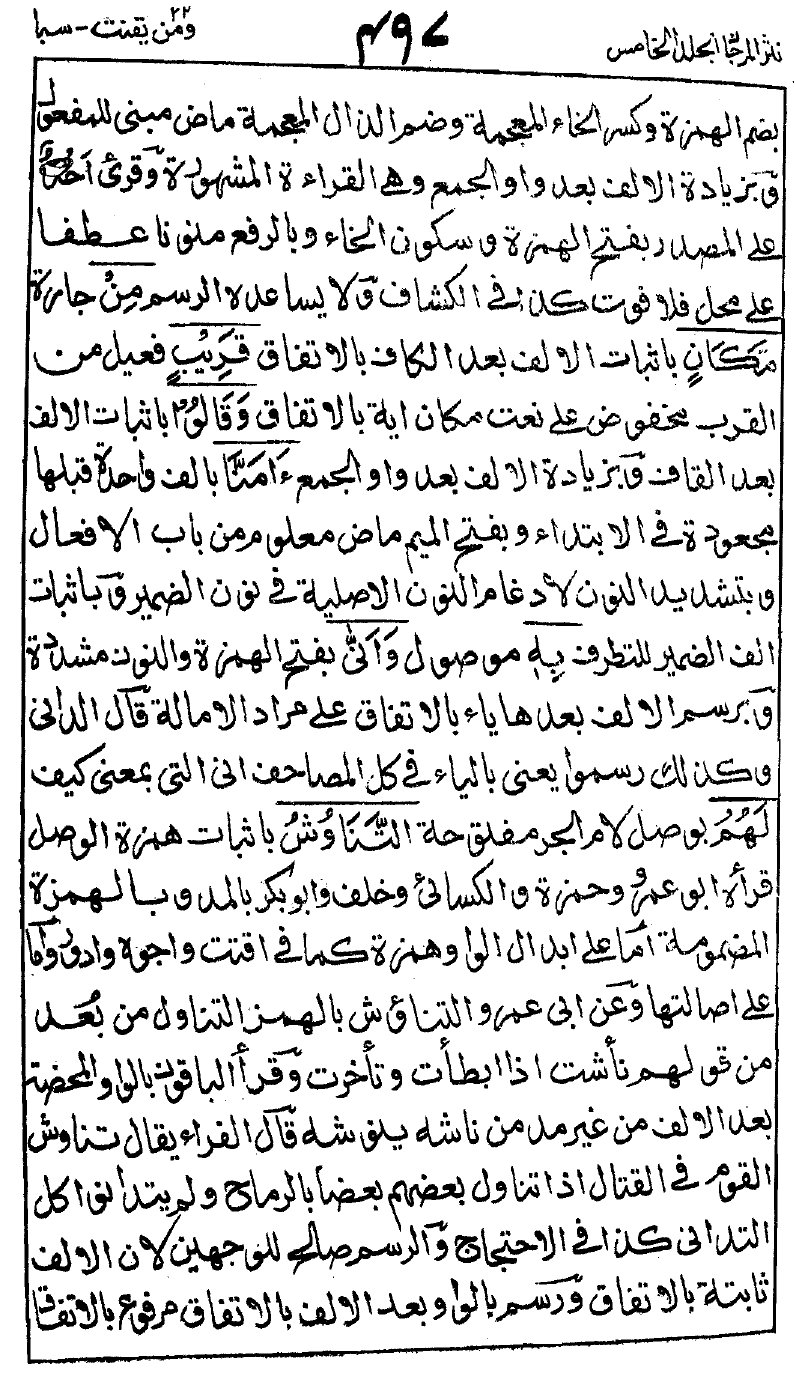 نثر المرجان الجلد الخامس ٤٩٧ ومن يقنت ٢٢ - سبا
بضم الهمزة وكسر الخاء المعجمة وضم الذال المعجمة ماض مبنى للمفعول
وَبزيادة الالف بعد واو الجمع وهى القراءة المشهورة وَقرئ اَخْذٌ
على المصدر بفتح الهمزة وسكون الخاء وبالرفع منونا عطفا
على محل فلا فوت كذا فى الكشاف وَلا يساعده الرسم مِنْ جارة
مَّكَانٍ باثبات الالف بعد الكاف بالاتفاق قَرِيْبٍ فعيل من
القرب مخفوض على نعت مكان اية بالاتفاق وَقَالُوْا باثبات الالف
بعد القاف وَبزيادة الالف بعد واو الجمع ءَامَنَّا بالف واحدة قبلها
مجعودة فى الابتداء وبفتح الميم ماض معلوم من باب الافعال
وبتشديد النون لادغام النون الاصلية فى نون الضمير وَباثبات
الف الضمير للتطرف بِهٖ موصول وَاَنّٰى بفتح الهمزة والنون مشددة
وَبرسم الالف بعدها ياء بالاتفاق على مراد الامالة قَال الدانى
وكذلك رسموا يعنى بالياء فى كل المصاحف انى التى بمعنى كيف
لَهُمُ بوصل لام الجر مفتوحة التَّنَاوُشُ باثبات همزة الوصل
قرأه ابو عمرو وحمزة والكسائى وخلف وابوبكر بالمد وبالهمزة
المضمومة اما على ابدال الواو همزة كما فى اقتت واجوه وادور وَاما
على اصالتها وَعن ابى عمرو التناؤش بالهمز التناول من بُعد
من قولهم نأشت اذا ابطأت وتأخرت وَقرأ الباقون بالواو المحضة
بعد الالف من غير مد من ناشه ينوشه قَال الفراء يقال تناوش
القوم فى القتال اذا تناول بعضهم بعضا بالرماح ولم يتدانوا كل
التدانى كذا فى الاحتجاج وَالرسم صالح للوجهين لان الالف
ثابتة بالاتفاق وَرسم بالواو بعد الالف بالاتفاق مرفوع بالاتفاق